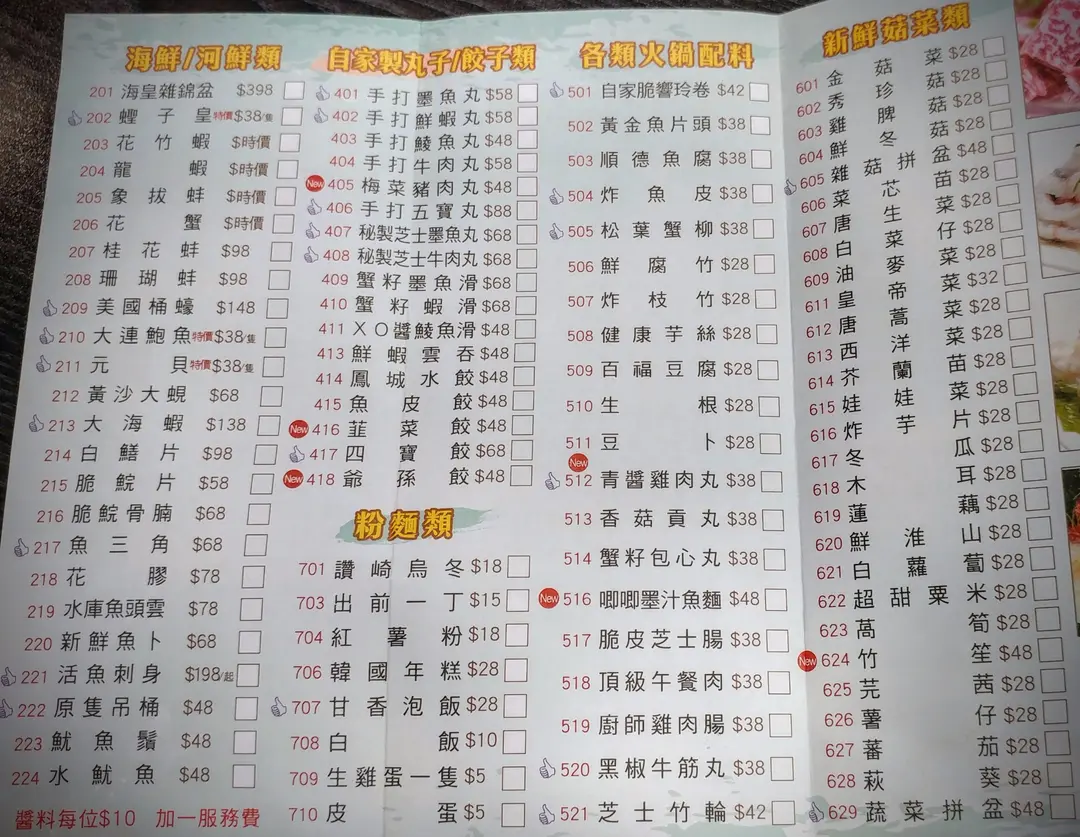 海鮮/河鮮類
201 海皇雜錦盆 $398
202 蟶子皇 特價$38/隻
203 花竹蝦 $時價
204 龍蝦 $時價
205 象拔蚌 $時價
206 花蟹 $時價
207 桂花蚌 $98
208 珊瑚蚌 $98
209 美國桶蠔 $148
210 大連鮑魚 特價$38/隻
211 元貝 特價$38/隻
212 黃沙大蜆 $68
213 大海蝦 $138
214 白鱔片 $98
215 脆鯇片 $58
216 脆鯇骨腩 $68
217 魚三角 $68
218 花膠 $78
219 水庫魚頭雲 $78
220 新鮮魚卜 $68
221 活魚刺身 $198/起
222 原隻吊桶 $48
223 魷魚鬚 $48
224 水魷魚 $48
醬料每位$10 加一服務費
自家製丸子/餃子類
401 手打墨魚丸 $58
402 手打鮮蝦丸 $58
403 手打鯪魚丸 $48
404 手打牛肉丸 $58
New 405 梅菜豬肉丸 $48
406 手打五寶丸 $88
407 秘製芝士墨魚丸 $68
408 秘製芝士牛肉丸 $68
409 蟹籽墨魚滑 $68
410 蟹籽蝦滑 $68
411 XO醬鯪魚滑 $48
413 鮮蝦雲吞 $48
414 鳳城水餃 $48
415 魚皮餃 $48
New 416 韮菜餃 $48
417 四寶餃 $68
New 418 爺孫餃 $48
粉麵類
701 讚崎烏冬 $18
703 出前一丁 $15
704 紅薯粉 $18
706 韓國年糕 $28
707 甘香泡飯 $28
708 白飯 $10
709 生雞蛋一隻 $5
710 皮蛋 $5
各類火鍋配料
501 自家脆響玲卷 $42
502 黃金魚片頭 $38
503 順德魚腐 $38
504 炸魚皮 $38
505 松葉蟹柳 $38
506 鮮腐竹 $28
507 炸枝竹 $28
508 健康芋絲 $28
509 百福豆腐 $28
510 生根 $28
511 豆卜 $28
New 512 青醬雞肉丸 $38
513 香菇貢丸 $38
514 蟹籽包心丸 $38
New 516 唧唧墨汁魚麵 $48
517 脆皮芝士腸 $38
518 頂級午餐肉 $38
519 廚師雞肉腸 $38
520 黑椒牛筋丸 $38
521 芝士竹輪 $42
新鮮菇菜類
601 金菇菜 $28
602 秀珍菇 $28
603 雞脾菇 $28
604 鮮冬菇 $28
605 雜菇拼盆 $48
606 菜芯苗 $28
607 唐生菜 $28
608 白菜仔 $28
609 油麥菜 $28
611 皇帝菜 $32
612 唐蒿菜 $28
613 西洋菜 $28
614 芥蘭苗 $28
615 娃娃菜 $28
616 炸芋片 $28
617 冬瓜 $28
618 木耳 $28
619 蓮藕 $28
620 鮮淮山 $28
621 白蘿蔔 $28
622 超甜粟米 $28
623 萵筍 $28
New 624 竹笙 $48
625 芫茜 $28
626 薯仔 $28
627 蕃茄 $28
628 萩葵 $28
629 蔬菜拼盆 $48